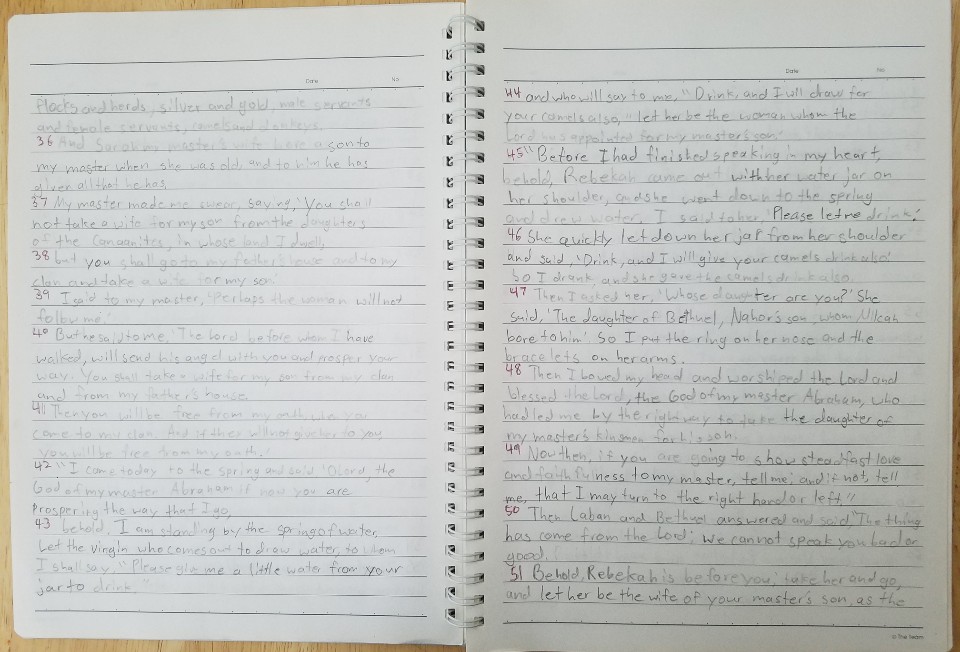 Date No.
flocks and herds, silver and gold, male servants
and female servants, camels and donkeys.
36 And Sarah my master's wife bore a son to
my master when she was old, and to him he has
given all that he has.
37 My master made me swear, saying, 'You shall
not take a wife for my son from the daughters
of the Canaanites, in whose land I dwell,
38 but you shall go to my father's house and to my
clan and take a wife for my son.'
39 I said to my master, 'Perhaps the woman will not
follow me.'
40 But he said to me, 'The Lord before whom I have
walked, will send his angel with you and prosper your
way. You shall take a wife for my son from my clan
and from my father's house.
41 Then you will be free from my oath, when you
come to my clan. And if they will not give her to you,
you will be free from my oath.'
42 "I came today to the spring and said 'O Lord, the
God of my master Abraham if now you are
prospering the way that I go,
43 behold, I am standing by the spring of water.
Let the virgin who comes out to draw water, to whom
I shall say, "Please give me a little water from your
jar to drink,"
Date No.
44 and who will say to me, "Drink, and I will draw for
your camels also," let her be the woman whom the
Lord has appointed for my master's son.'
45 "Before I had finished speaking in my heart,
behold, Rebekah came out with her water jar on
her shoulder, and she went down to the spring
and drew water. I said to her 'Please let me drink.'
46 She quickly let down her jar from her shoulder
and said, 'Drink, and I will give your camels drink also.'
So I drank, and she gave the camels drink also.
47 Then I asked her, 'Whose daughter are you?' She
said, 'The daughter of Bethuel, Nahor's son, whom Milcah
bore to him.' So I put the ring on her nose and the
bracelets on her arms.
48 Then I bowed my head and worshiped the Lord and
blessed the Lord, the God of my master Abraham, who
had led me by the right way to take the daughter of
my master's kinsmen for his son.
49 Now then, if you are going to show steadfast love
and faithfulness to my master, tell me; and if not, tell
me, that I may turn to the right hand or left."
50 Then Laban and Bethuel answered and said, "The thing
has come from the Lord; we cannot speak you bad or
good.
51 Behold, Rebekah is before you; take her and go,
and let her be the wife of your master's son, as the
© The Team